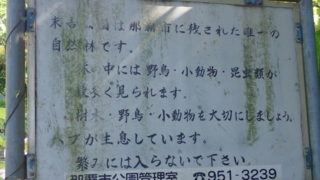 末吉公園は那覇市に残された唯一の
自然林です。
中には野鳥・小動物・昆虫類が
数多く見られます。
樹木・野鳥・小動物を大切にしましょう。
ハブが生息しています。
繁みには入らないで下さい。
那覇市公園管理室 ☎951-3239